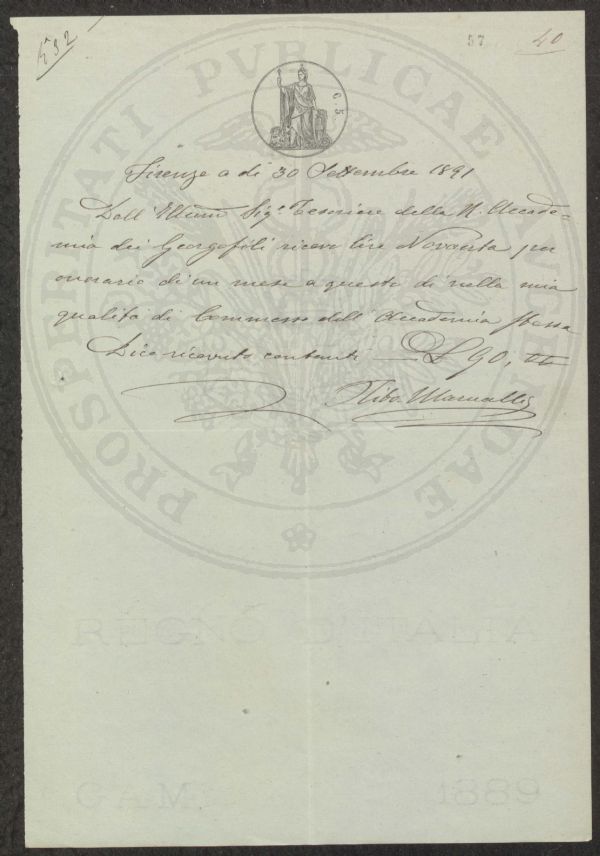 57
40
PROSPERITATI PVBLICAE AVGENDAE
C. 5
Firenze a dì 30 Settembre 1891
Dall' Illmo Sigr. Tesoriere della R. Accade-
mia dei Georgofili ricevo lire Novanta per
onorario di un mese a questo dì nella mia
qualità di Commesso dell' Accademia stessa
Dico ricevute contanti — £ 90,
REGNO D'ITALIA
1889